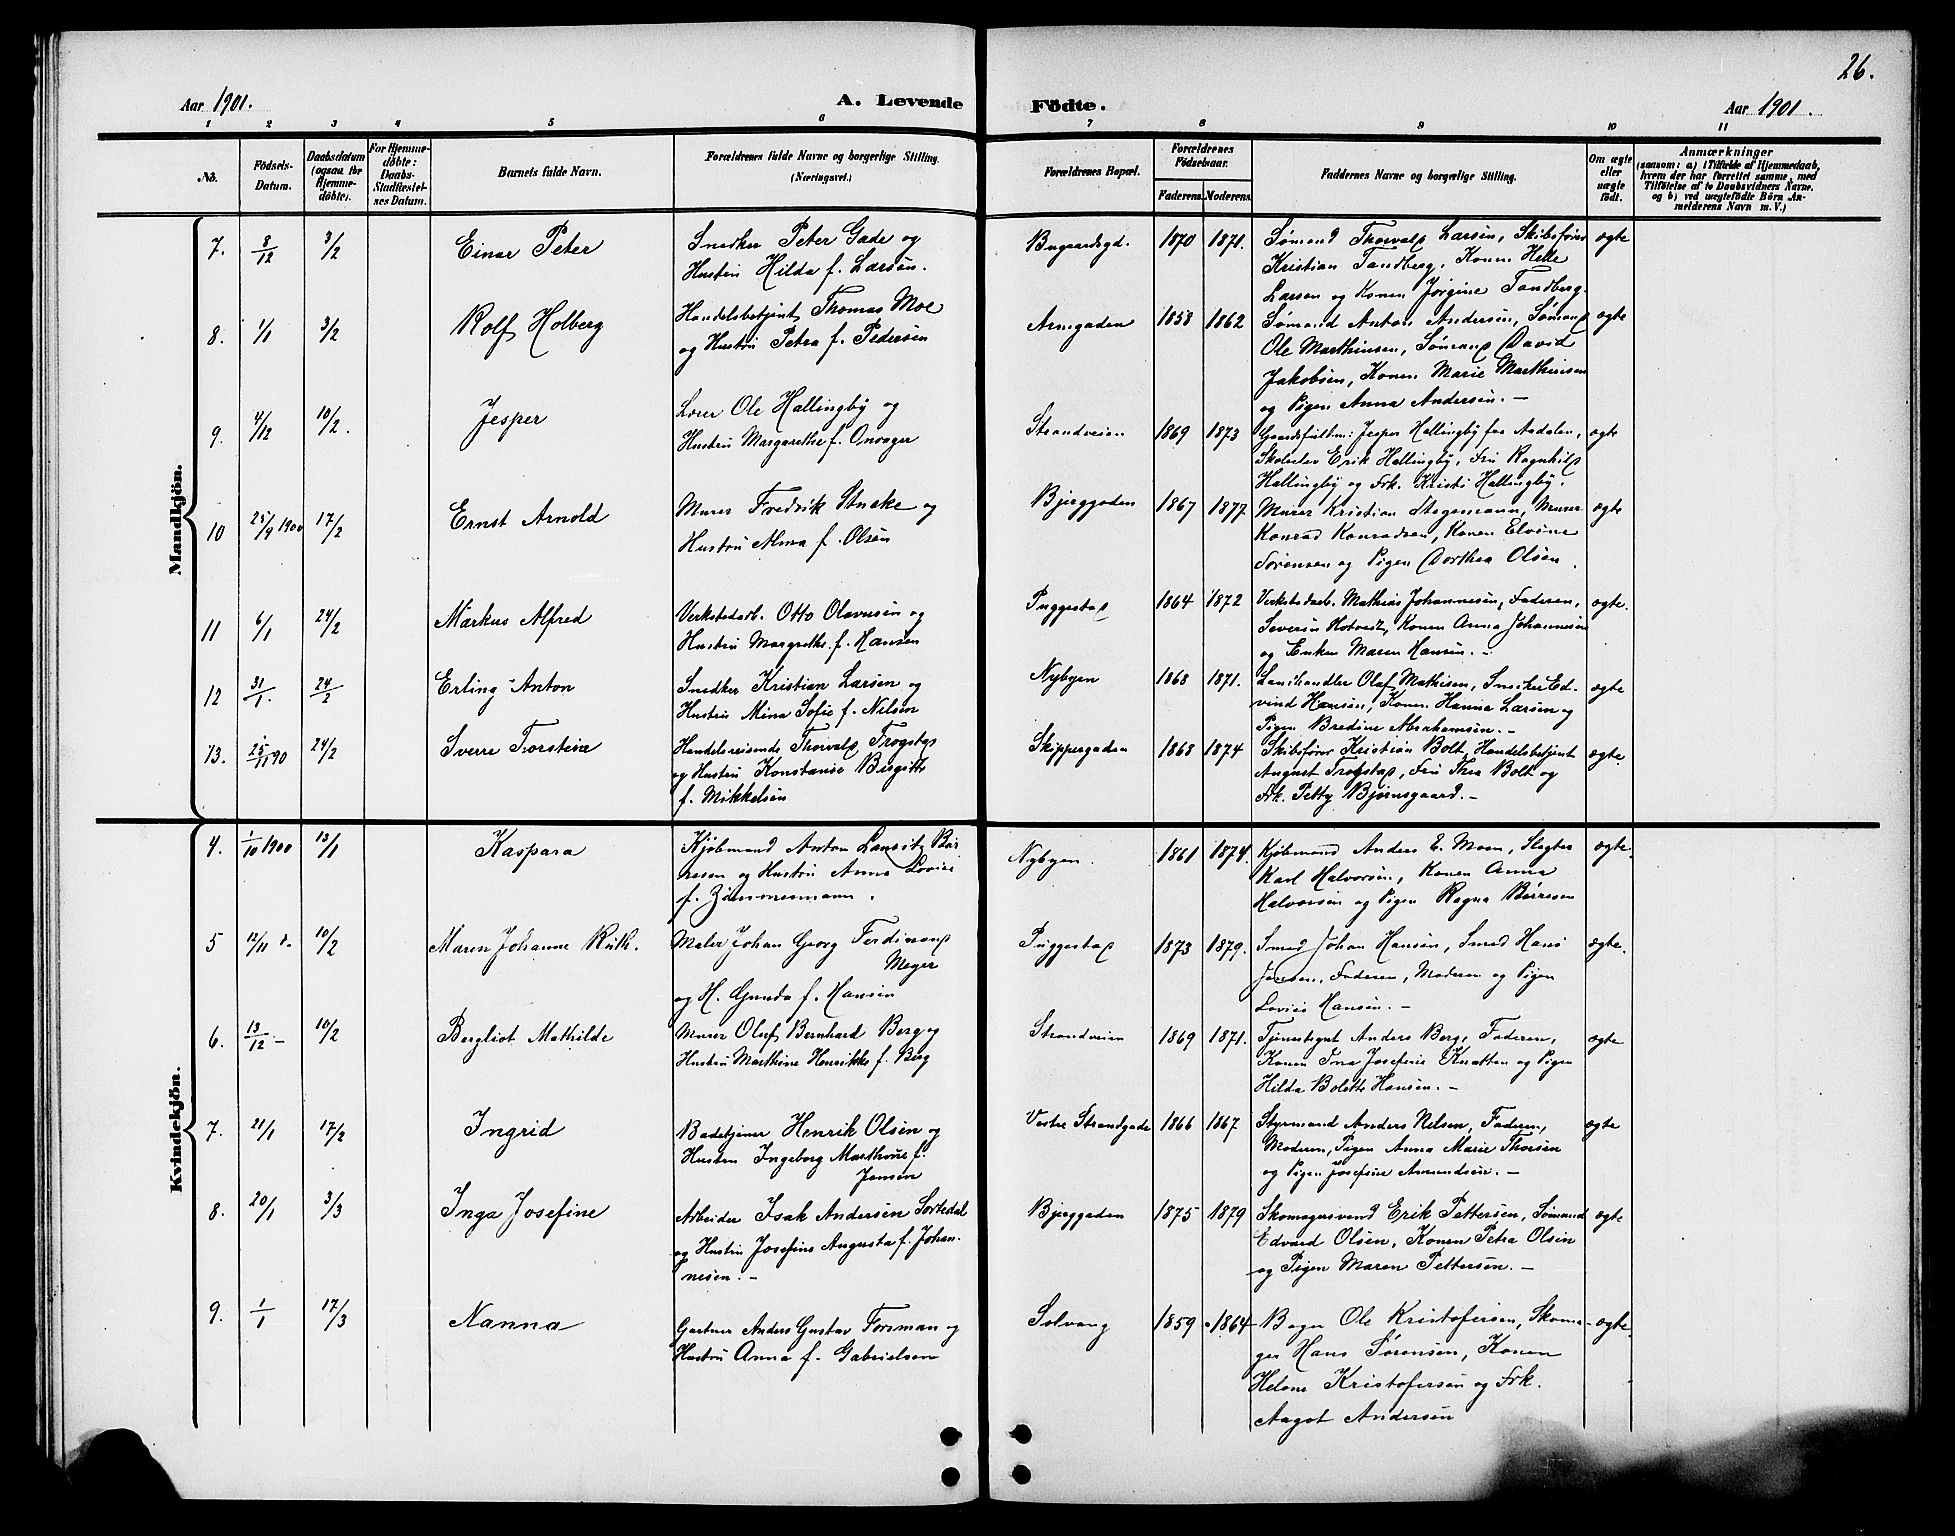 26.
Aar 1901.
A. Levende Födte.
Aar 1901.
1 2 3 4 5 6 7 8 9 10 11
No.
Födsels-Datum.
Daabsdatum (ogsaa for Hjemmedöbte).
For Hjemmedöbte: Daabs-Stadfæstelses Datum.
Barnets fulde Navn.
Forældrenes fulde Navne og borgerlige Stilling. (Næringsvei.)
Forældrenes Bopæl.
Forældrenes Födselsaar.
Faderens. Moderens.
Faddernes Navne og borgerlige Stilling.
Om ægte eller uægte födt.
Anmærkninger
(saasom: a) i Tilfælde af Hjemmedaab, hvem der har forrettet samme, med Tilföielse af to Daabsvidners Navne, og b) ved uægtefödte Börn Anmelderens Navn m. V.)
Mandkjön.
7. 8/12 3/2 Einar Peter
Snedker Peter Gade og
Hustru Hilda f. Larsen.
1870 1871.
Sømand Thorvald Larsen, Skibsfører
Kristian Tandberg, Konen
Larsen og Konen Jørgine Tandberg.
ægte
8. 1/1 3/2 Rolf Holberg
Handelsbetjent Thomas Moe
og Hustru Petra f. Pedersen
Armgaden 1853 1862
Sømand Anton Andersen, Sømand
Ole Marthinsen, Sømand David
Jakobsen, Konen Marie Marthinsen
og Pigen Anna Andersen. —
ægte
9. 4/12 10/2. Jesper
Lærer Ole Hallingby og
Hustru Margarethe f.
Strandveien 1869 1873
Jesper Hallingby fra Aadalen,
Skoleelev Erik Hallingby, Fru Ragnhild
Hallingby og Frk. Kristi Hallingby.
ægte
10 25/9 1900 17/2 Ernst Arnold
Murer Fredrik Stucke og
Hustru Alma f. Olsen
Bjerggaden 1867 1877
Murer Kristian Stegemann, Murer
Konrad Konradsen, Konen Elvine
Sørensen og Pigen Dorthea Olsen.
ægte
11 6/1 24/2 Markus Alfred
Verkstedarb. Otto Olavesen og
Hustru Margrethe f. Hansen
Puggestad 1864 1872
Verkstedarb. Mathias Johannesen, Faderen,
Severin Hotvedt, Konen Anna Johannesen
og Enken Maren Hansen. —
ægte.
12 31/1. 24/2 Erling Anton
Snedker Kristian Larsen og
Hustru Mina Sofie f. Nilsen
Nybyen 1868 1871.
Landhandler Olaf Mathisen, Snedker Ed-
vind Hansen, Konen Hanna Larsen og
Pigen Bredine Abrahamsen. —
ægte
13. 25/11 90 24/2 Sverre Torstein
Handelsreisende Thorvald Trogstad
og Hustru Konstanse Birgitte
f. Mikkelsen
Skippergaden 1868 1874
Skibsfører Kristian Bolt, Handelsbetjent
August Trogstad, Fru Thea Bolt og
Frk. Petty Bjørnsgaard. —
ægte.
Kvindekjön.
4. 1/10 1900 13/1 Kaspara
Kjøbmand Anton Lauritz Bør
resen og Hustru Anna Lovise
f. Zimmermann.
Nybyen. 1861 1874.
Kjøbmand Anders E. Moen, Slagter
Karl Halvorsen, Konen Anna
Halvorsen og Pigen Ragna Børresen
ægte.
5 12/11 10/2 Maren Johanne Ruth.
Maler Johan Georg Ferdinand
Meyer
og H. Gunda f. Hansen
Puggestad 1873 1879.
Smed Johan Hansen, Smed Hans
Jensen, Faderen, Moderen og Pigen
Lovise Hansen. —
ægte.
6. 13/12 — 10/2 Bergliot Mathilde
Murer Oluf Bernhard Berg og
Hustru Marthine Henrikke f. Berg
Strandveien 1869 1871.
Tjenestegut Anders Berg, Faderen,
Konen Ina Josefine Knatten og Pigen
Hilda Bolette Hansen. —
ægte
7. 21/1 17/2 Ingrid
Badetjener Henrik Olsen og
Hustru Ingeborg Marthine f.
Jensen
Vestre Strandgade 1866 1867
Styrmand Anders Nelsen, Faderen,
Moderen, Pigen Anna Marie Thorsen
og Pigen Josefine Amundsen. —
ægte
8. 20/1 3/3 Inga Josefine
Arbeider Isak Andersen Sortedal
og Hustru Josefine Augusta f. Johan-
nesen. —
Bjerggaden 1875 1879
Skomagersvend Erik Pettersen, Sømand
Edvard Olsen, Konen Petra Olsen
og Pigen Maren Pettersen. —
ægte
9. 1/1 17/3 Nanna
Gartner Anders Gustav Forsman og
Hustru Anna f. Gabrielson
Solvang 1859 1864
Bager Ole Kristofersen, Skoma-
ger Hans Sørensen, Konen
Helene Kristofersen og Frk.
Aagot Andersen
ægte.